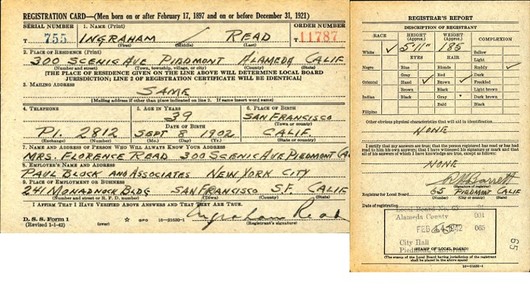 REGISTRATION CARD—(Men born on or after February 17, 1897 and on or before December 31, 1921)
SERIAL NUMBER 1. NAME (Print) ORDER NUMBER
T 755 INGRAHAM READ T 11787
(First) (Middle) (Last)
2. PLACE OF RESIDENCE (Print)
300 SCENIC AVE PIEDMONT ALAMEDA CALIF
(Number and street) (Town, township, village, or city) (County) (State)
[THE PLACE OF RESIDENCE GIVEN ON THE LINE ABOVE WILL DETERMINE LOCAL BOARD
JURISDICTION; LINE 2 OF REGISTRATION CERTIFICATE WILL BE IDENTICAL]
3. MAILING ADDRESS
SAME
[Mailing address if other than place indicated on line 2. If same insert word same]
4. TELEPHONE 5. AGE IN YEARS 6. PLACE OF BIRTH
39 SAN FRANCISCO
DATE OF BIRTH
PI. 2812 SEPT 8 1902 CALIF.
(Exchange) (Number) (Mo.) (Day) (Yr.) (State or country)
7. NAME AND ADDRESS OF PERSON WHO WILL ALWAYS KNOW YOUR ADDRESS
MRS. FLORENCE READ 300 SCENIC AVE PIEDMONT
8. EMPLOYER'S NAME AND ADDRESS
PAUL BLOCK AND ASSOCIATES NEW YORK CITY
9. PLACE OF EMPLOYMENT OR BUSINESS
241 MONADNOCK BLDG SAN FRANCISCO S.F. CALIF
(Number and street or R. F. D. number) (Town) (County) (State)
I AFFIRM THAT I HAVE VERIFIED ABOVE ANSWERS AND THAT THEY ARE TRUE.
D. S. S. Form 1
(Revised 1-1-42) Ingraham Read
(Registrant's signature)
REGISTRAR'S REPORT
DESCRIPTION OF REGISTRANT
RACE HEIGHT (Approx.) WEIGHT (Approx.) COMPLEXION
White 5'11" 185 Sallow
EYES HAIR Light
Negro Blue Blonde Ruddy
Gray Red Dark
Oriental Hazel Brown Freckled
Brown Black Light brown
Indian Black Gray Dark brown
Bald Black
Filipino
Other obvious physical characteristics that will aid in identification
NONE
I certify that my answers are true; that the person registered has read or has had
read to him his own answers; that I have witnessed his signature or mark and that
all of his answers of which I have knowledge are true, except as follows:
NONE
Registrar for Local Board 65 PIEDMONT CALIF
Date of registration
Local Board No. 65
Alameda County 001
FEB 1942 065
City Hall
Piedmont, California
(STAMP OF LOCAL BOARD)
65